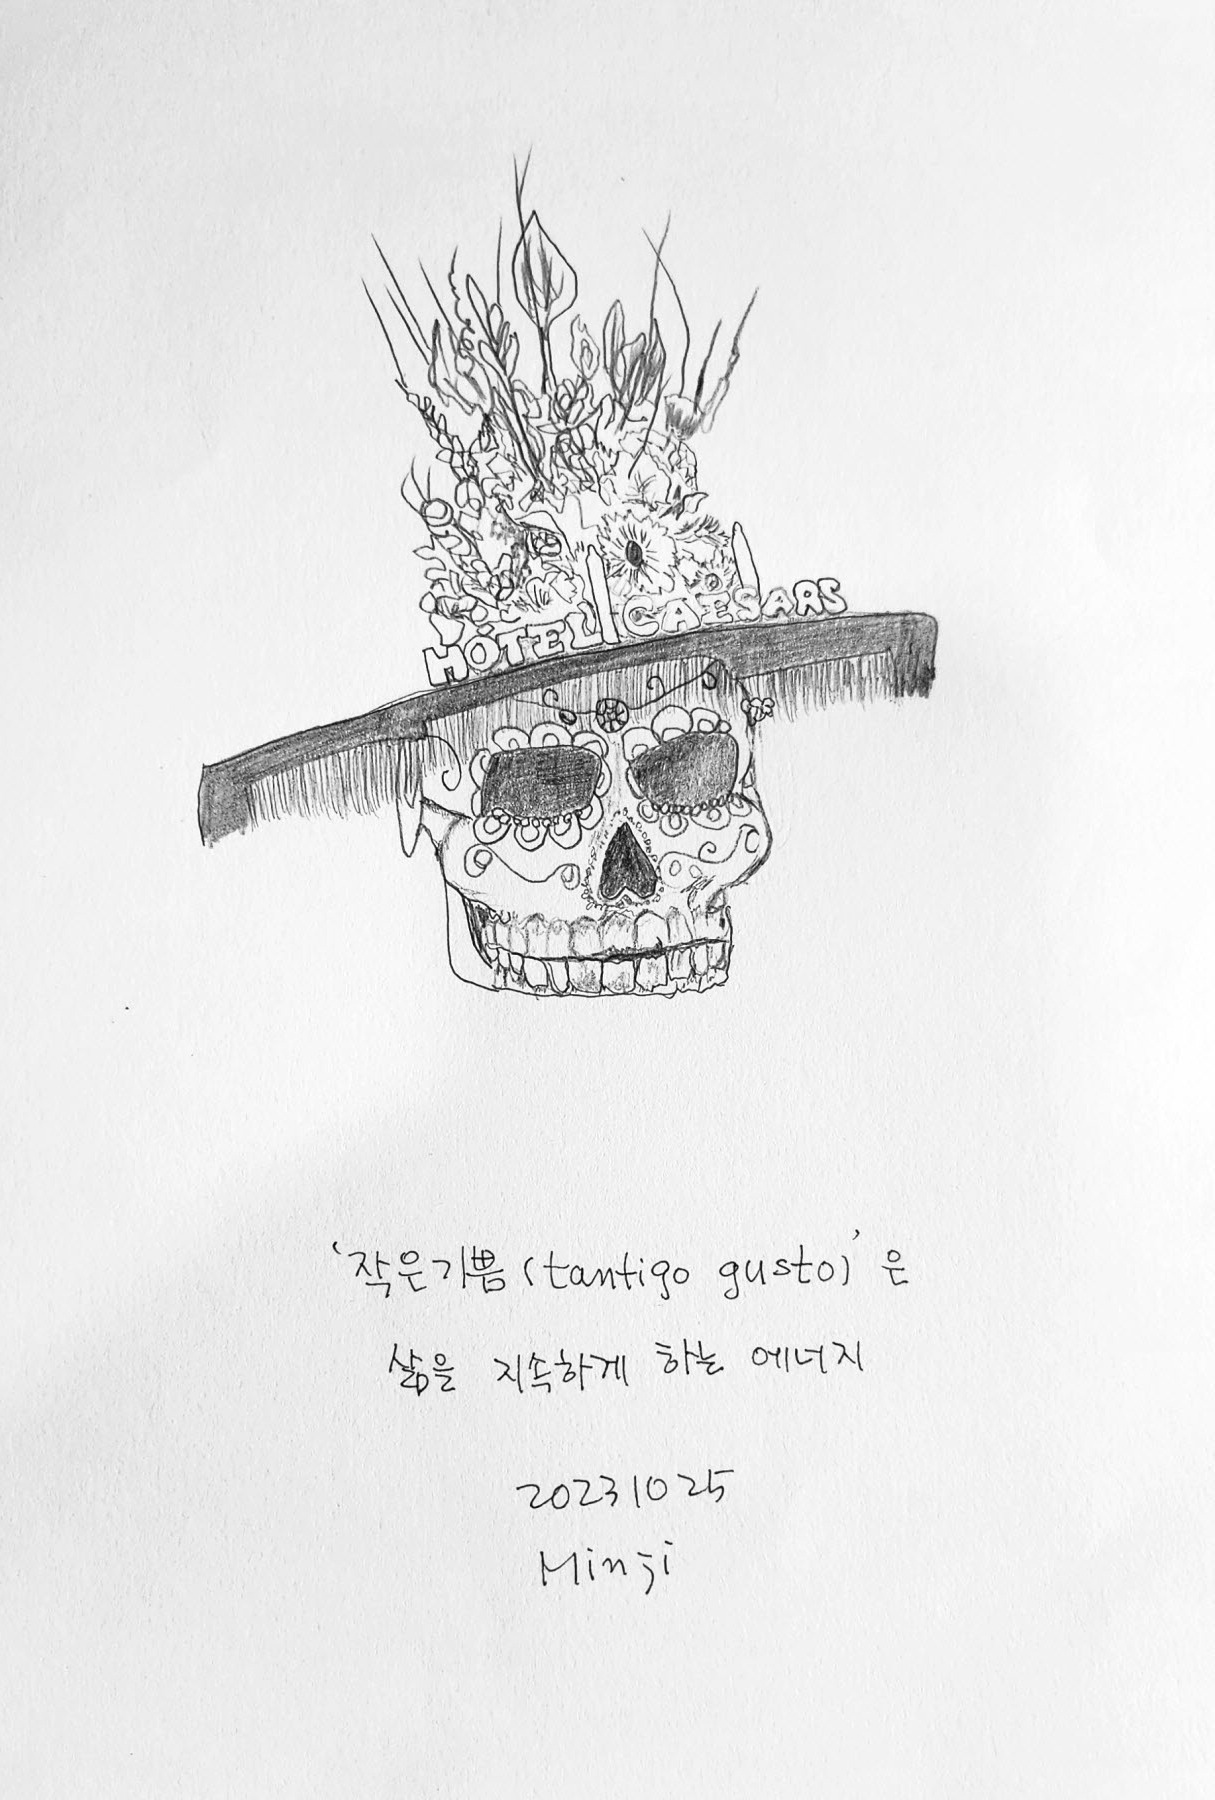 HOTEL CAESARS
'작은기쁨(tantigo gusto)'은
삶을 지속하게 하는 에너지
20231025
Minji